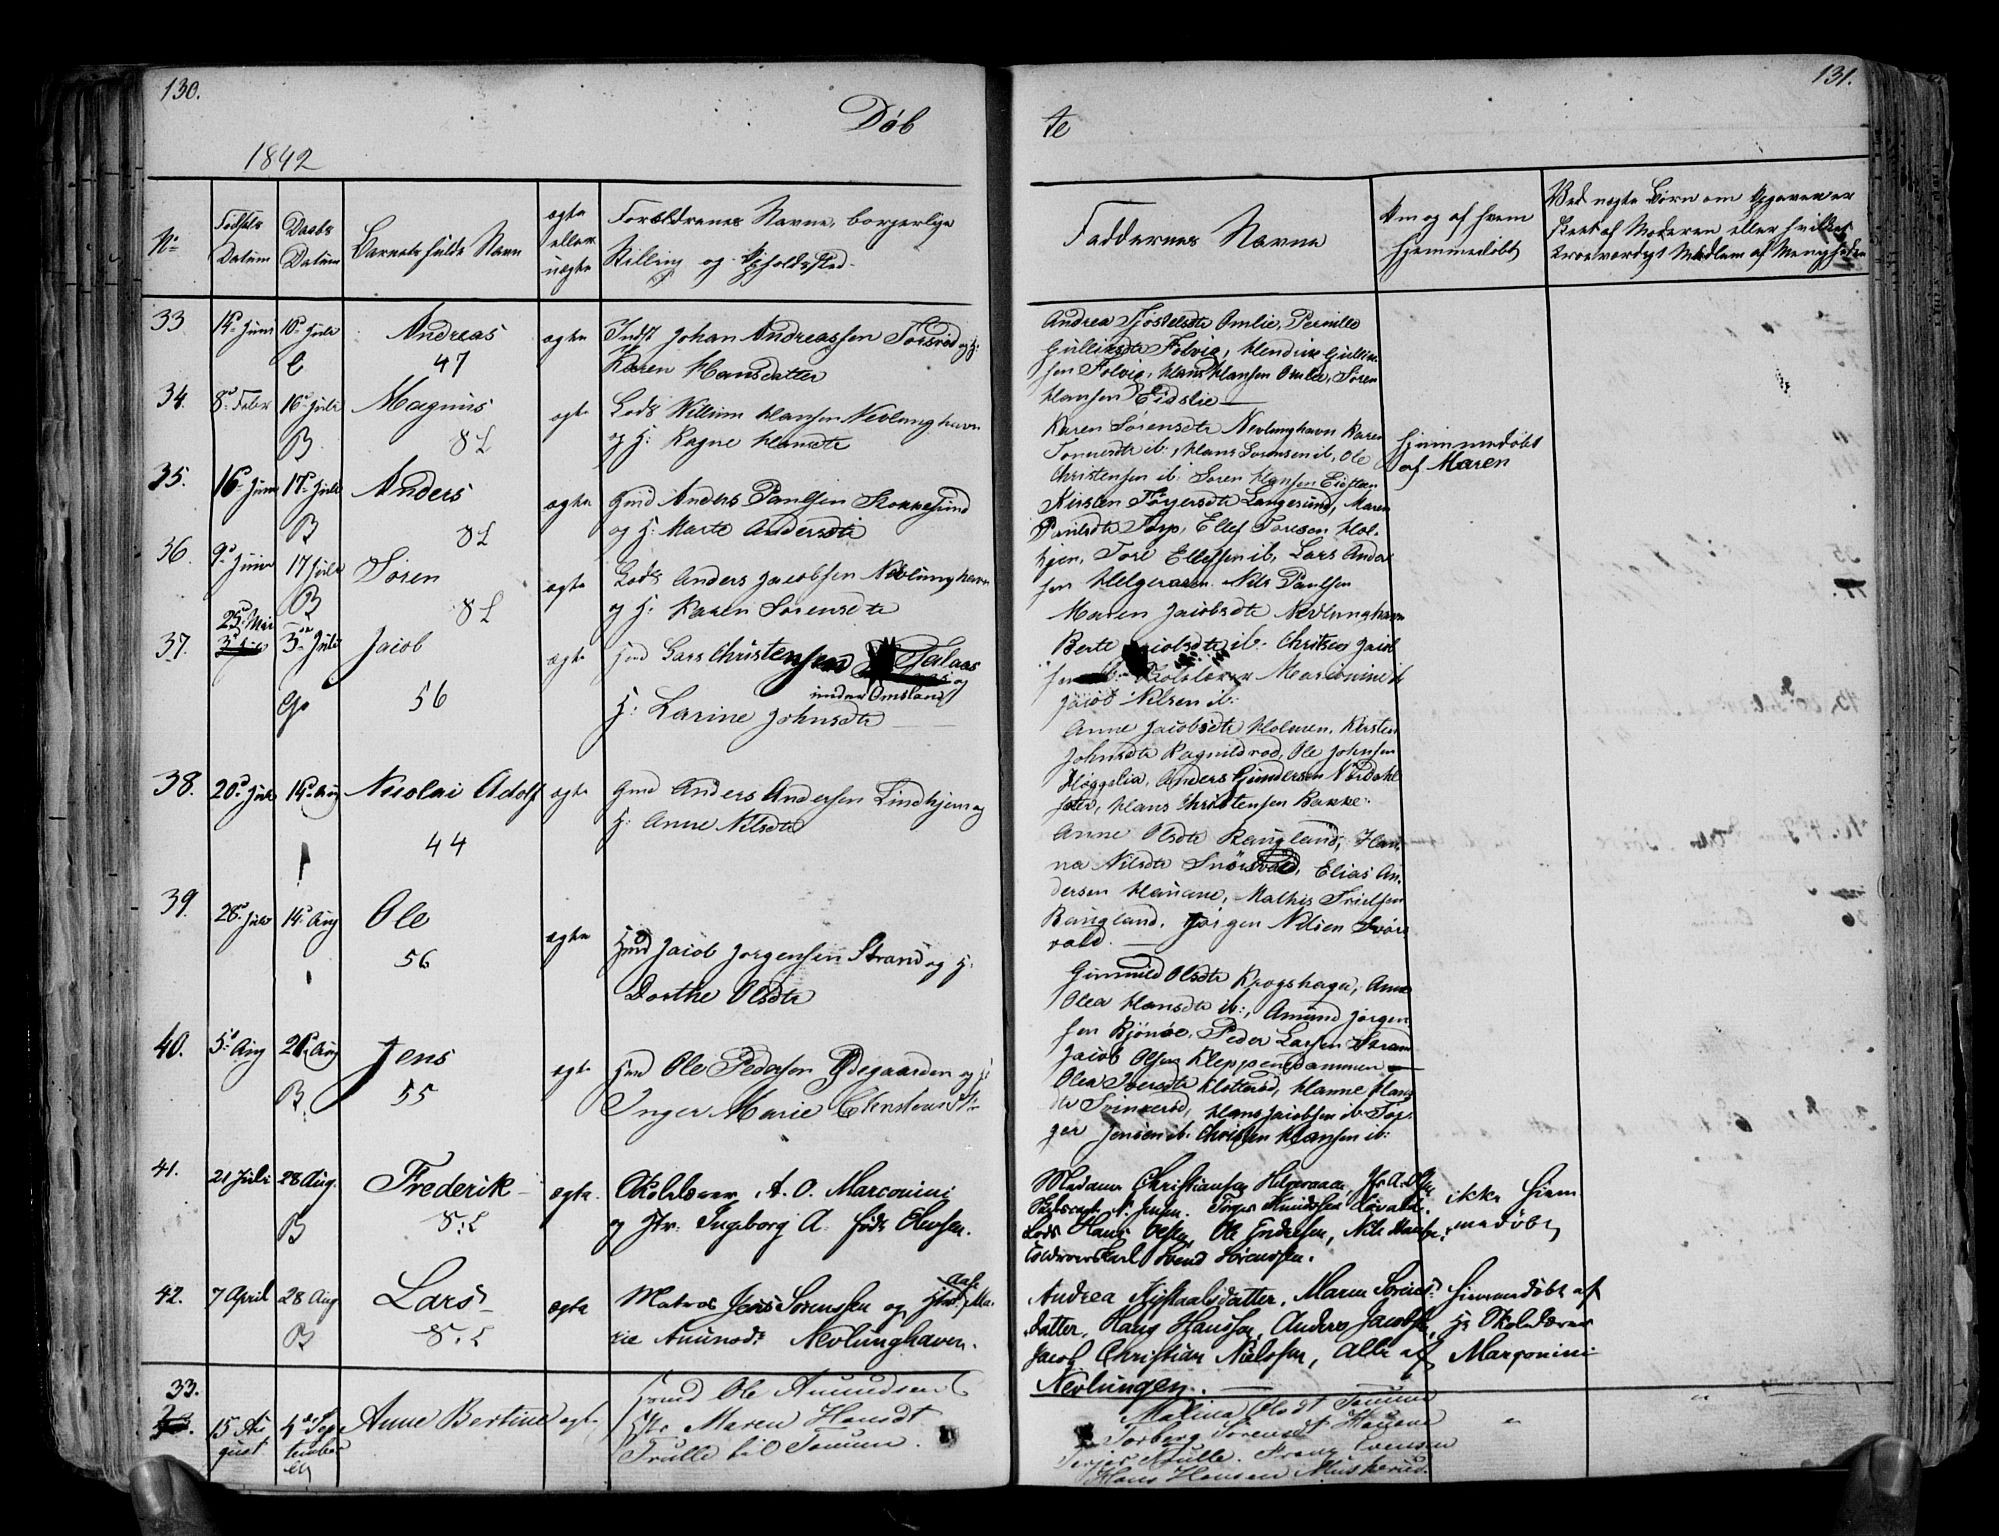 130.
Døb
1842
No
Fødsels Datum
Daabs Datum
Barnets fulde Navn
ægte eller uægte
Forældrenes Navne, borgerlige
Stilling og Opholdssted.
33
14de Juni
10de Juli
Andreas
ægte
Indst Johan Andreassen Torsrød og H:
Karen Hansdatter
47
34.
8de Febr
16de Juli
Magnus
ægte
Lods Willum Hansen Nevlunghavn
og H: Ragne Hansdtr
B
8 L
35.
16de Juni
17de Juli
Anders
ægte
Gmd Anders Paulsen Stokkesund
og H: Marte Andersdtr
B
8 L
36.
9de Juni
17 Juli
Søren
ægte
Lods Anders Jacobsen Nevlunghavn
og H: Karen Sørensdtr
B
8 L
37.
25de Mai
3de Juli
Jacob
ægte
Hmd Lars Christensen
under Omsland og
H: Larine Johnsdtr
56
38.
20de Juli
14de Aug
Nicolai Adolf
ægte
Gmd Anders Andersen Lindhjem og
H: Anne Nilsdtr
44
39.
28de Juli
14de Aug
Ole
ægte
Hmd Jacob Jørgensen Strand og H:
Dorthe Olsdtr
56
40.
5te Aug
21de Aug
Jens
ægte
Hmd Ole Pedersen Ødegaarden og H:
Inger Marie Christensdtr
B.
55
41.
21 Juli
28 Aug.
Frederik
ægte.
Skolelærer A. O. Marconini
og Hstr. Ingeborg A. føds Olevsen.
B
8: L
42.
7 April
28 Aug
Lars
ægte
Matros Jens Sørenssen og Hstr Aase Ma-
rie Amunds. Nevlunghaven.
B
8: L
33.
15 Au-
gust
4de Sep-
tember
Anne Bertine
ægte
Hmd Ole Amundsen
Hstr Maren Hansdt.
Trulle til Tommen.
131.
te
Faddernes Navne
Om og af hvem
hjemmedøbt
Ved uægte Børn om Opgaven er
skeet af Moderen eller hvilket
troeværdigt Medlem af Menigheden
Andrea Tjøstelsdtr Omlie, Pernille
Gulliksdtr Folvig, Hendrik Gullik-
sen Folvig, Hans Hansen Omlie, Søren
Hansen Eidslie
Karen Sørensdtr Nevlunghavn Karen
Tønnesdtr ib:, Hans Sørensen ib, Ole
Christensen ib: Søren Hansen Eidsten
hjemmedøbt
af Maren
Kirsten Torgersdtr Langesund, Maren
Paulsdtr Torp, Ellef Toresen Hol-
hjen, Tore Ellefsen ib, Lars Ander
sen Helgeraaen. Nils Paulsen
Maren Jacobsdtr Nevlunghavn
Berte Jacobsdtr ib. Christen Jacob
sen ib. Skolelærer Marconini ib
Jacob Nilsen ib:
Anne Jacobsdtr Holmen, Kirsten
Johnsdtr Ragnildrød, Ole Johnsen
Høggelia, Anders Gundersen Nordahl
sæter, Hans Christensen Bakke.
Anne Olsdtr Haugland, Han-
na Nilsdtr Snørsvold, Elias An-
dersen Hauane, Mathis Trulsen
Haugland, Jørgen Nilsen Svørs
vold.
Gunnild Olsdtr Krogshagen, Anne
Olea Hansdtr ib:, Amund Jørgen
sen Bjønøe, Peder Larsen Strand
Jacob Olsen Kleppensdammen
Olea Iversdtr Klotterød, Hanne Hans
dtr Svinkerød, Hans Jacobsen ib. Tor-
ger Jensen ib. Christen Hansen ib:
Madame Christiansen Helgeraaen.
N. Jensen. Torger Knudssen
Lods Hans Olsen, Ole Endresen, Nils Hansen,
Svend Sørenssen.
ikke hiem
medøbt
Andrea Kistaalsdatter, Maren Sørens-
datter, Hans Hansen, Anders Jacobsen,
Jacob Christian Nielssen, Alle af
Nevlungen.
hiemmedøbt af
Hr Skolelærer
Marconini
Malina Olsdt Tommen
Torberg Sørensdt Hauene
Terjer Trulle. Franz Evensen
Hans Hansen Muskerud.